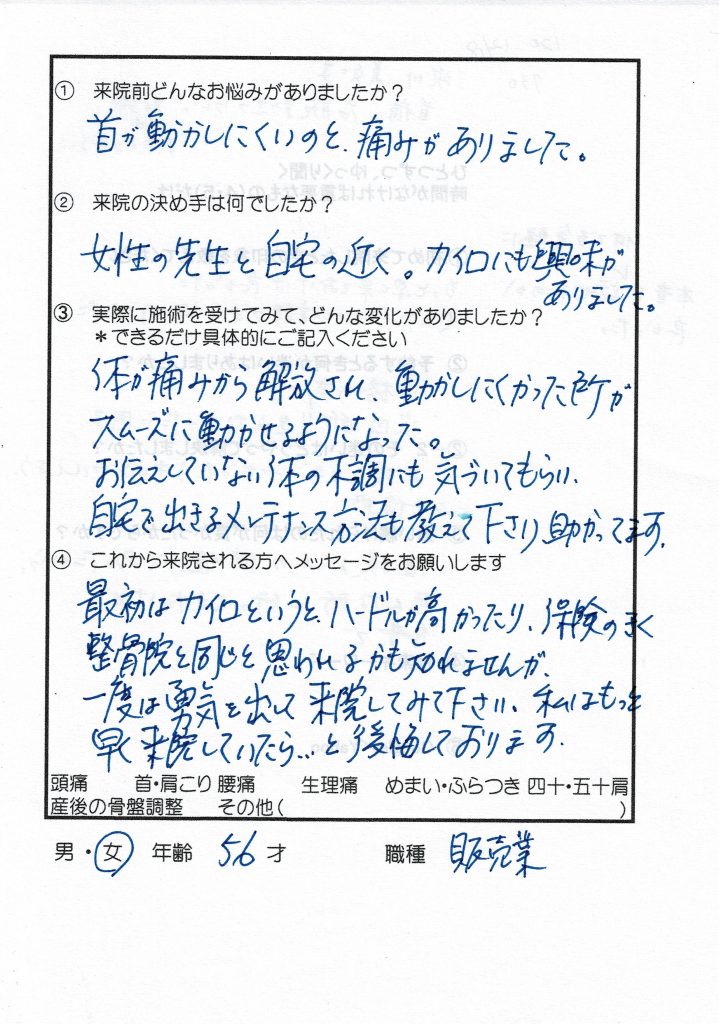 ① 来院前どんなお悩みがありましたか？
首が動かしにくいのと、痛みがありました。
② 来院の決め手は何でしたか？
女性の先生と自宅の近く。カイロにも興味が
ありました。
③ 実際に施術を受けてみて、どんな変化がありましたか？
＊できるだけ具体的にご記入ください
体が痛みから解放され、動かしにくかった所が
スムーズに動かせるようになった。
お伝えしていない体の不調にも気づいてもらい、
自宅で出きるメンテナンス方法も教えて下さり助かってます。
④ これから来院される方へメッセージをお願いします
最初はカイロというと、ハードルが高かったり、保険のきく
整骨院と同じと思われるかも知れませんが、
一度は勇気を出して来院してみて下さい。私はもっと
早く来院していたら…と後悔しております。
頭痛 首・肩こり 腰痛 生理痛 めまい・ふらつき 四十・五十肩
産後の骨盤調整 その他( )
男・女 年齢 56 才 職種 販売業